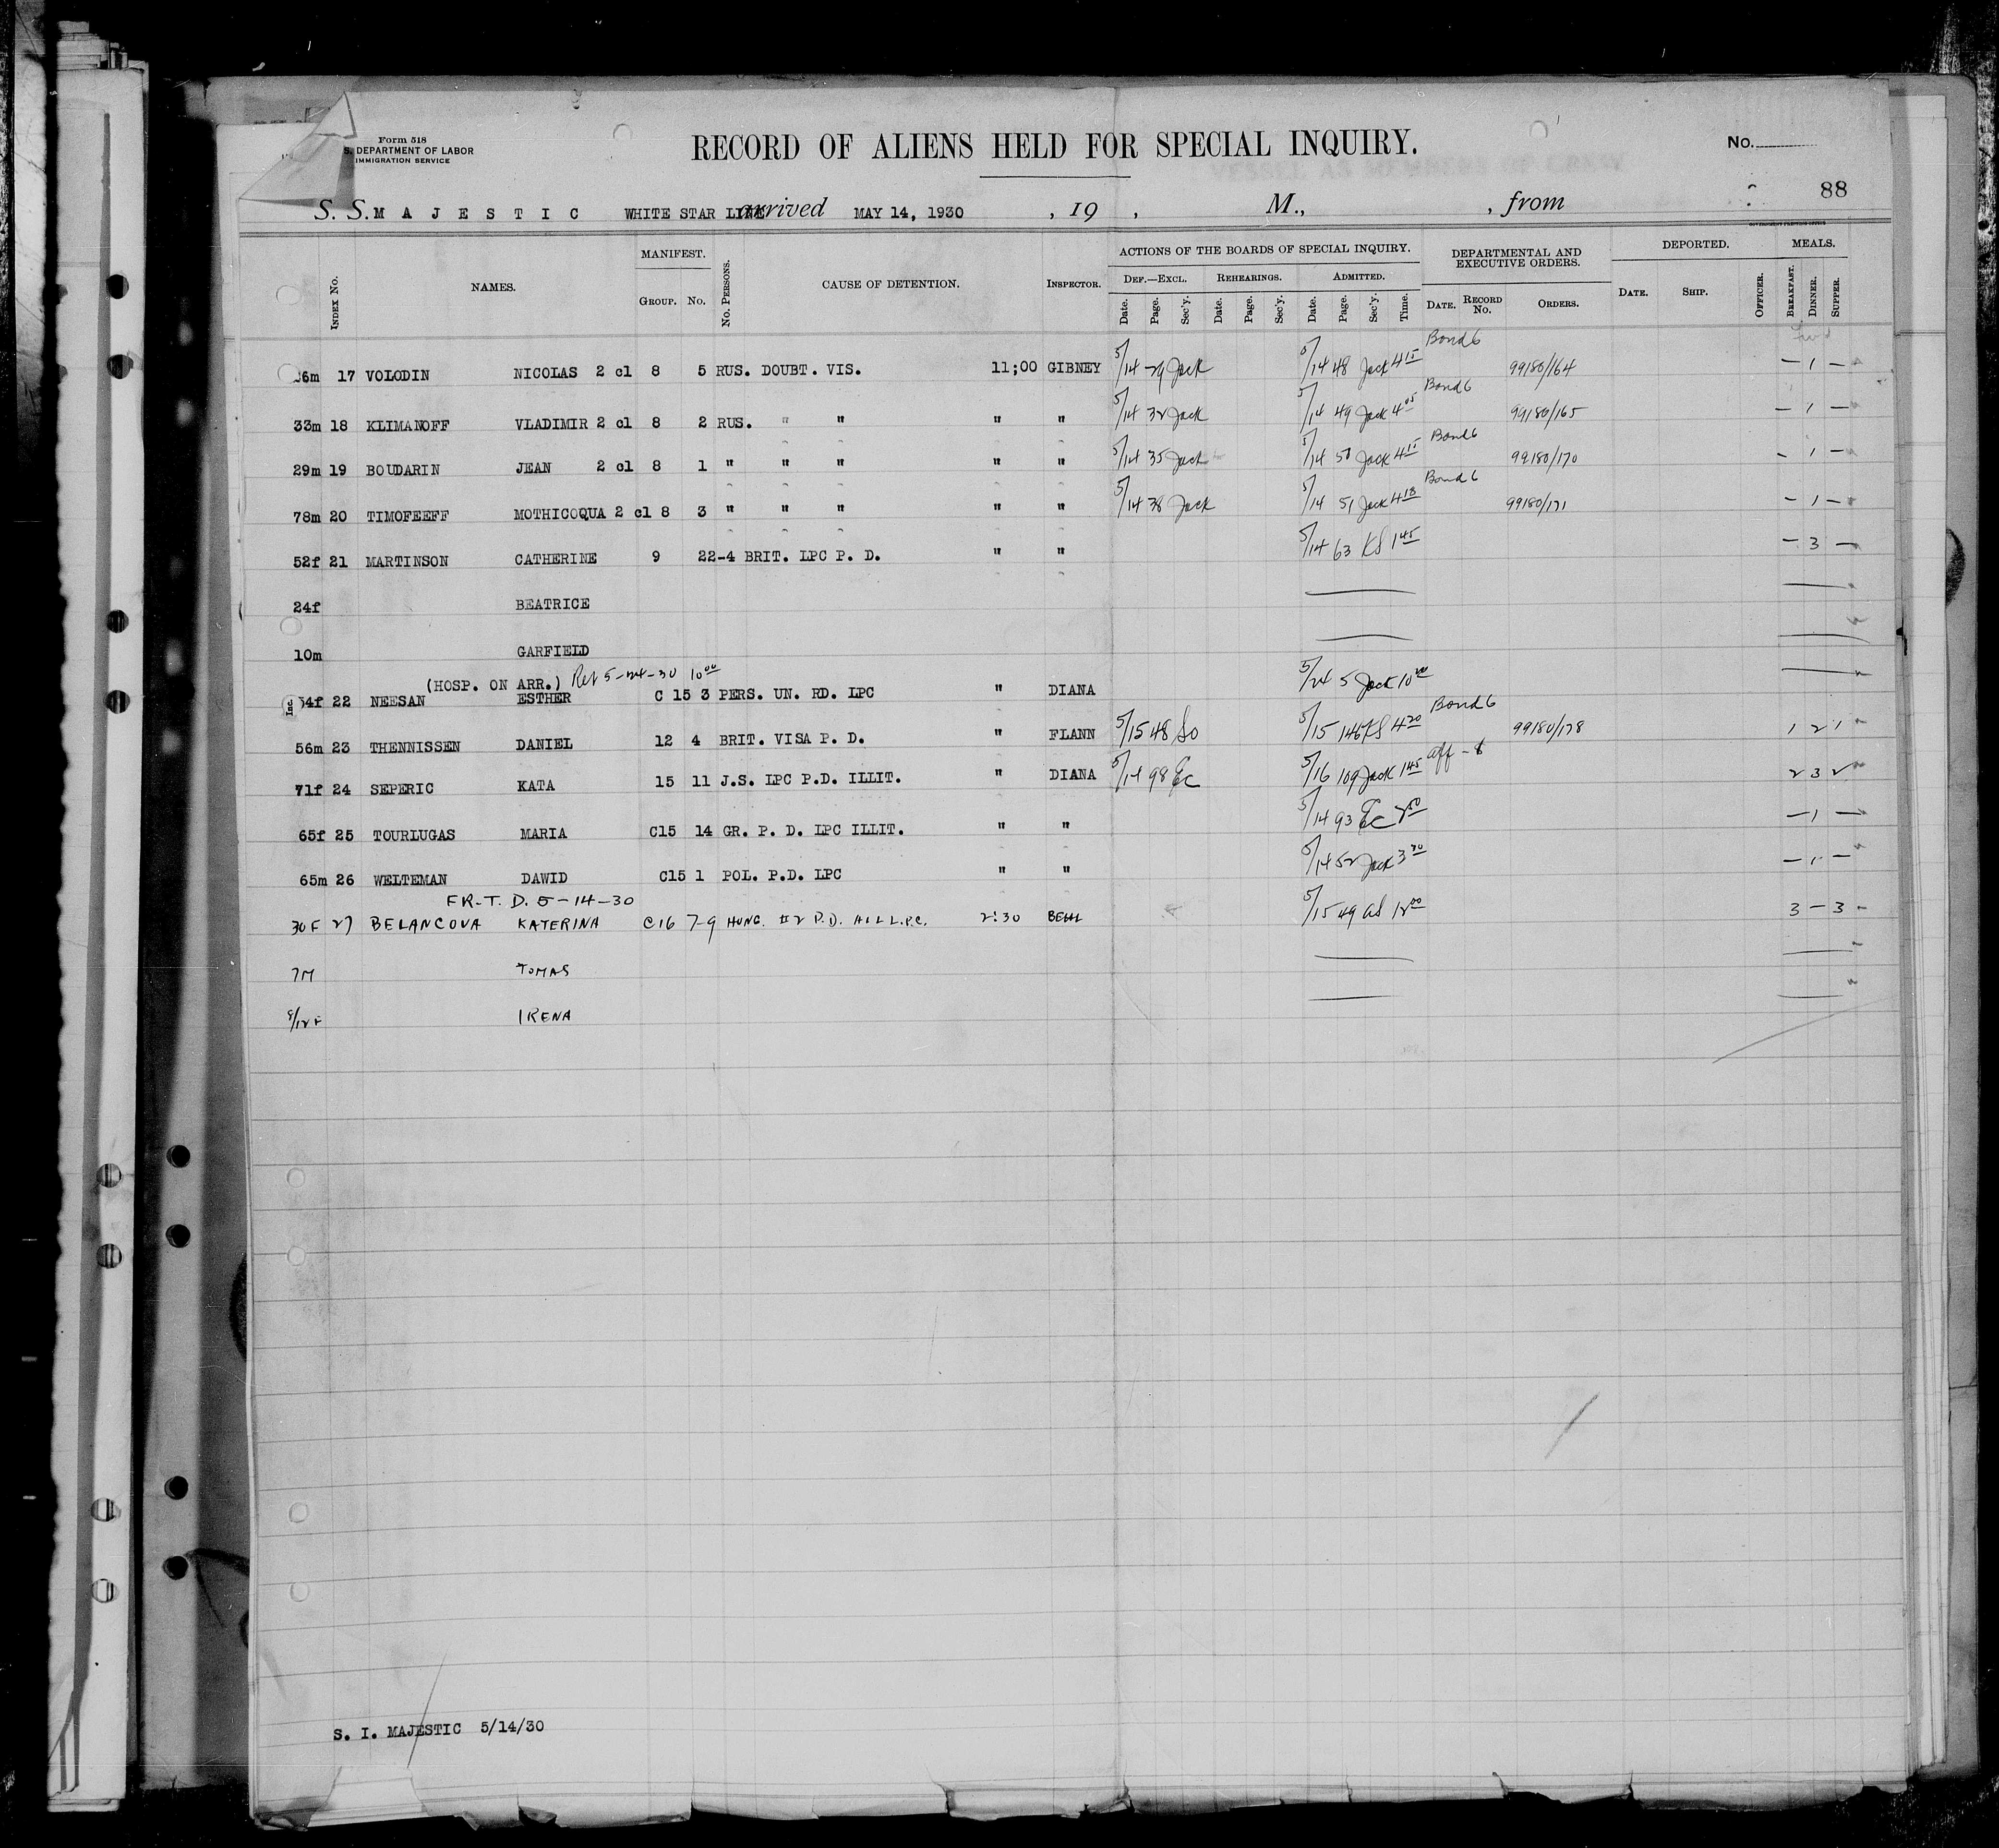 Form 518
S. DEPARTMENT OF LABOR
IMMIGRATION SERVICE
RECORD OF ALIENS HELD FOR SPECIAL INQUIRY.
No.
88
S. S. MAJESTIC WHITE STAR LINE arrived MAY 14, 1930 , 19 , M., , from
INDEX No. NAMES. MANIFEST. GROUP. No. No. PERSONS. CAUSE OF DETENTION. INSPECTOR. ACTIONS OF THE BOARDS OF SPECIAL INQUIRY. DEPARTMENTAL AND EXECUTIVE ORDERS. DEPORTED. MEALS.
DEF.—EXCL. REHEARINGS. ADMITTED.
Date. Page. Sec'y. Date. Page. Sec'y. Date. Page. Sec'y. Time. DATE. RECORD No. ORDERS. DATE. SHIP. OFFICER. BREAKFAST. DINNER. SUPPER.
Bond 6
6m 17 VOLODIN NICOLAS 2 cl 8 5 RUS. DOUBT. VIS. 11;00 GIBNEY 5/14 29 Jack 5/14 48 Jack 4 15 99180/164 — 1 —
Bond 6
33m 18 KLIMANOFF VLADIMIR 2 cl 8 2 RUS. " " " " 5/14 32 Jack 5/14 49 Jack 4 05 99180/165 — 1 —
Bond 6
29m 19 BOUDARIN JEAN 2 cl 8 1 " " " " " 5/14 35 Jack 5/14 50 Jack 4 15 99180/170 — 1 —
Bond 6
78m 20 TIMOFEEFF MOTHICOQUA 2 cl 8 3 " " " " " 5/14 38 Jack 5/14 51 Jack 4 18 99180/171 — 1 —
52f 21 MARTINSON CATHERINE 9 22-4 BRIT. LPC P. D. " " 5/14 63 KS 1 45 — 3 —
24f BEATRICE
10m GARFIELD
(HOSP. ON ARR.) Ret 5-24-30 10 00
Inc. 54f 22 NEESAN ESTHER C 15 3 PERS. UN. RD. LPC " DIANA 5/24 5 Jack 10
Bond 6
56m 23 THENNISSEN DANIEL 12 4 BRIT. VISA P. D. " FLANN 5/15 48 So 5/15 146 KS 4 20 99180/178 1 2 1
aff -
71f 24 SEPERIC KATA 15 11 J.S. LPC P.D. ILLIT. " DIANA 5/14 98 Ec 5/16 109 Jack 1 45 2 3 2
65f 25 TOURLUGAS MARIA C15 14 GR. P. D. LPC ILLIT. " " 5/14 93 Ec — 1 —
65m 26 WELTEMAN DAWID C15 1 POL. P.D. LPC " " 5/14 52 Jack 3 30 — 1 —
FR.T. D. 5-14-30
30F 27 BELANCOVA KATERINA C16 7-9 HUNG. #2 P.D. L.P.C. 2:30 5/15 49 as 12 00 3 — 3 —
7M TOMAS
8/12 F IRENA
S. I. MAJESTIC 5/14/30